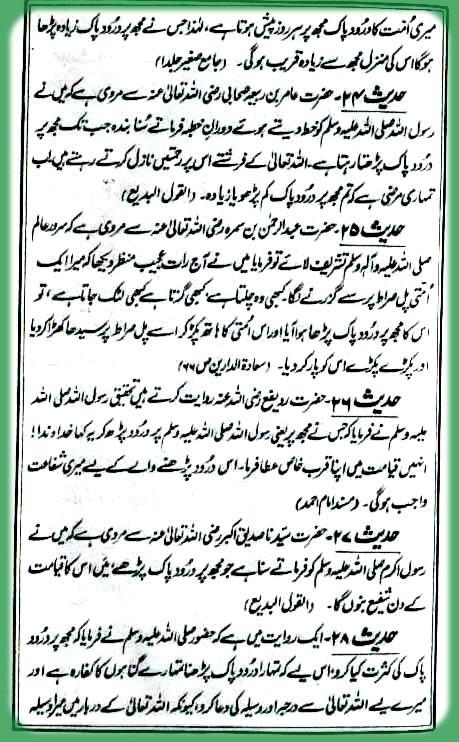 میری اُمّت کا درُود پاک مجھ پر ہر روز پیش ہوتا ہے، لہٰذا جس نے مجھ پر درُود پاک زیادہ پڑھا
ہوگا اس کی منزل مجھ سے زیادہ قریب ہوگی۔ (جامع صغیر جلد۱)
حدیث ۲۴۔ حضرت عامر بن ربیعہ صحابی رضی اللہ تعالیٰ عنہ سے مروی ہے کہ میں نے
رسول اللہ صلی اللہ علیہ وسلم کو خطبہ دیتے ہوئے دورانِ خطبہ فرماتے سُنا بندہ جب تک مجھ پر
درُود پاک پڑھتا رہتا ہے۔ اللہ تعالیٰ کے فرشتے اس پر رحمتیں نازل کرتے رہتے ہیں اب
تمہاری مرضی ہے کہ تم مجھ پر درُود پاک کم پڑھو یا زیادہ۔ (القول البدیع)
حدیث ۲۵۔ حضرت عبدالرحمٰن بن سمرہ رضی اللہ تعالیٰ عنہ سے مروی ہے کہ سرورِ عالم
صلی اللہ علیہ وآلہٖ وسلم تشریف لائے تو فرمایا میں نے آج رات عجیب منظر دیکھا کہ میرا ایک
اُمّتی پل صراط پر سے گزرنے لگا۔ کبھی وہ چلتا ہے کبھی گرتا ہے کبھی لٹک جاتا ہے، تو
اس کا مجھ پر درُود پاک پڑھا ہوا آیا اور اس اُمّتی کا ہاتھ پکڑ کر اسے پل صراط پر سیدھا کھڑا کر دیا
اور پکڑے پکڑے اس کو پار کر دیا۔ (سعادۃ الدارین ص ۶۶)
حدیث ۲۶۔ حضرت رویفع رضی اللہ عنہ روایت کرتے ہیں تحقیق رسول اللہ صلی اللہ
علیہ وسلم نے فرمایا کہ جس نے مجھ پر یعنی رسول اللہ صلی اللہ علیہ وسلم پر درُود پڑھ کر یہ کہا خداوندا!
انہیں قیامت میں اپنا قرب خاص عطا فرما۔ اس درُود پڑھنے والے کے لیے میری شفاعت
واجب ہوگی۔ (مسند امام احمد)
حدیث ۲۷۔ حضرت سیّدنا صدیق اکبر رضی اللہ تعالیٰ عنہ سے مروی ہے کہ میں نے
رسول اکرم صلی اللہ علیہ وسلم کو فرماتے سنا ہے جو مجھ پر درُود پاک پڑھے میں اس کا قیامت
کے دن شفیع بنوں گا۔ (القول البدیع)
حدیث ۲۸۔ ایک روایت میں ہے کہ حضور صلی اللہ علیہ وسلم نے فرمایا کہ مجھ پر درُود
پاک کی کثرت کیا کرو، اس لیے کہ تمہارا درُود پاک پڑھنا تمہارے گناہوں کا کفارہ ہے اور
میرے لیے اللہ تعالیٰ سے درجہ اور وسیلہ کی دعا کرو، کیونکہ اللہ تعالیٰ کے دربار میں میرا وسیلہ